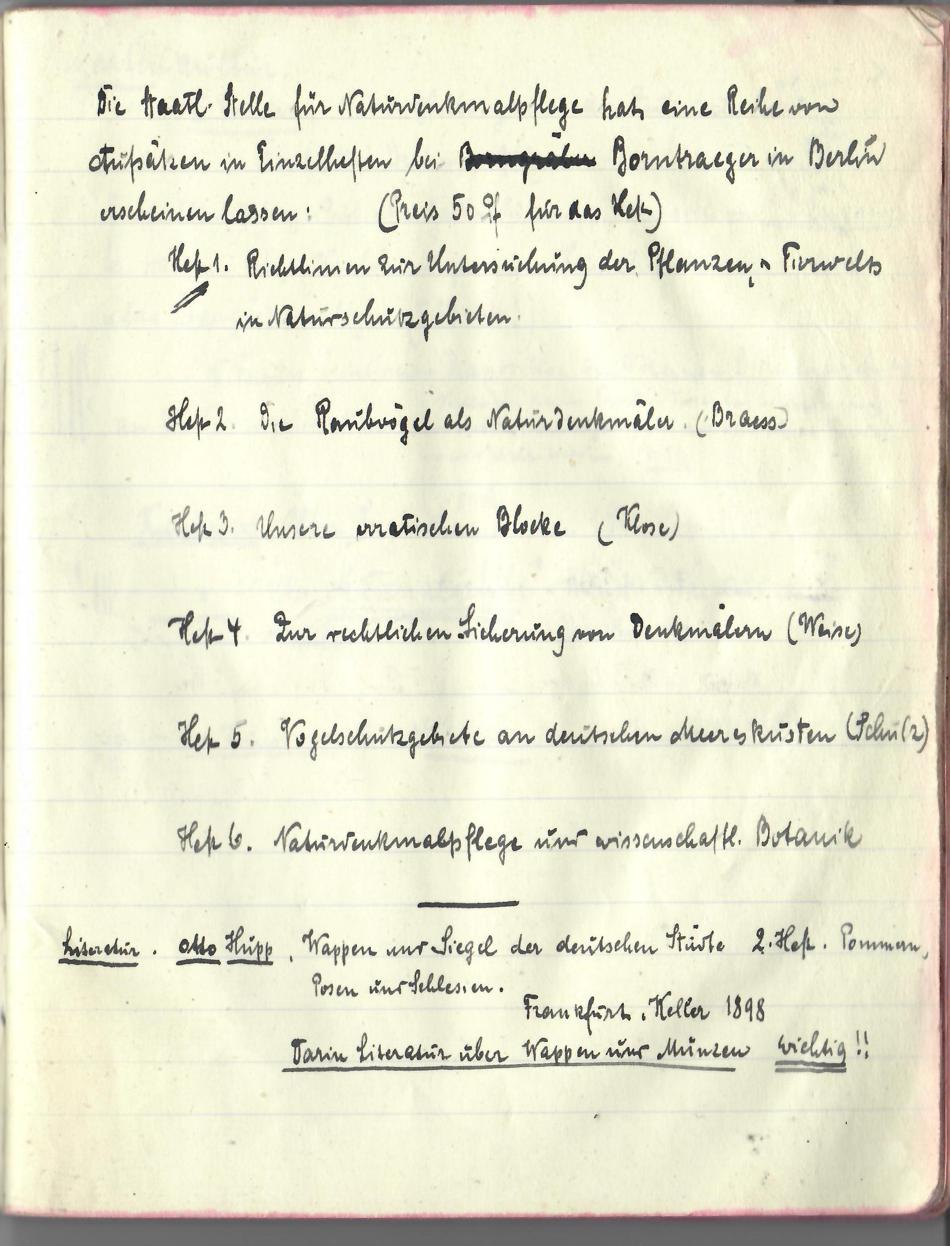 Die Staatl. Stelle für Naturdenkmalpflege hat eine Reihe von
Aufsätzen in Einzelheften bei Borngräber Borntraeger in Berlin
erscheinen lassen: (Preis 50 Pf für das Heft)
Heft 1. Richtlinien zur Untersuchung der Pflanzen- u Tierwelt
in Naturschutzgebieten.
Heft 2. Die Raubvögel als Naturdenkmäler. (Braess)
Heft 3. Unsere erratischen Blöcke (Klose)
Heft 4 Zur rechtlichen Sicherung von Denkmälern (Weise)
Heft 5. Vogelschutzgebiete an deutschen Meeresküsten (Schulz)
Heft 6. Naturdenkmalpflege und wissenschaftl. Botanik
Literatur. Otto Hupp, Wappen und Siegel der deutschen Städte 2. Heft. Pommern,
Posen und Schlesien.
Frankfurt, Keller 1898
Darin Literatur über Wappen und Münzen wichtig!!